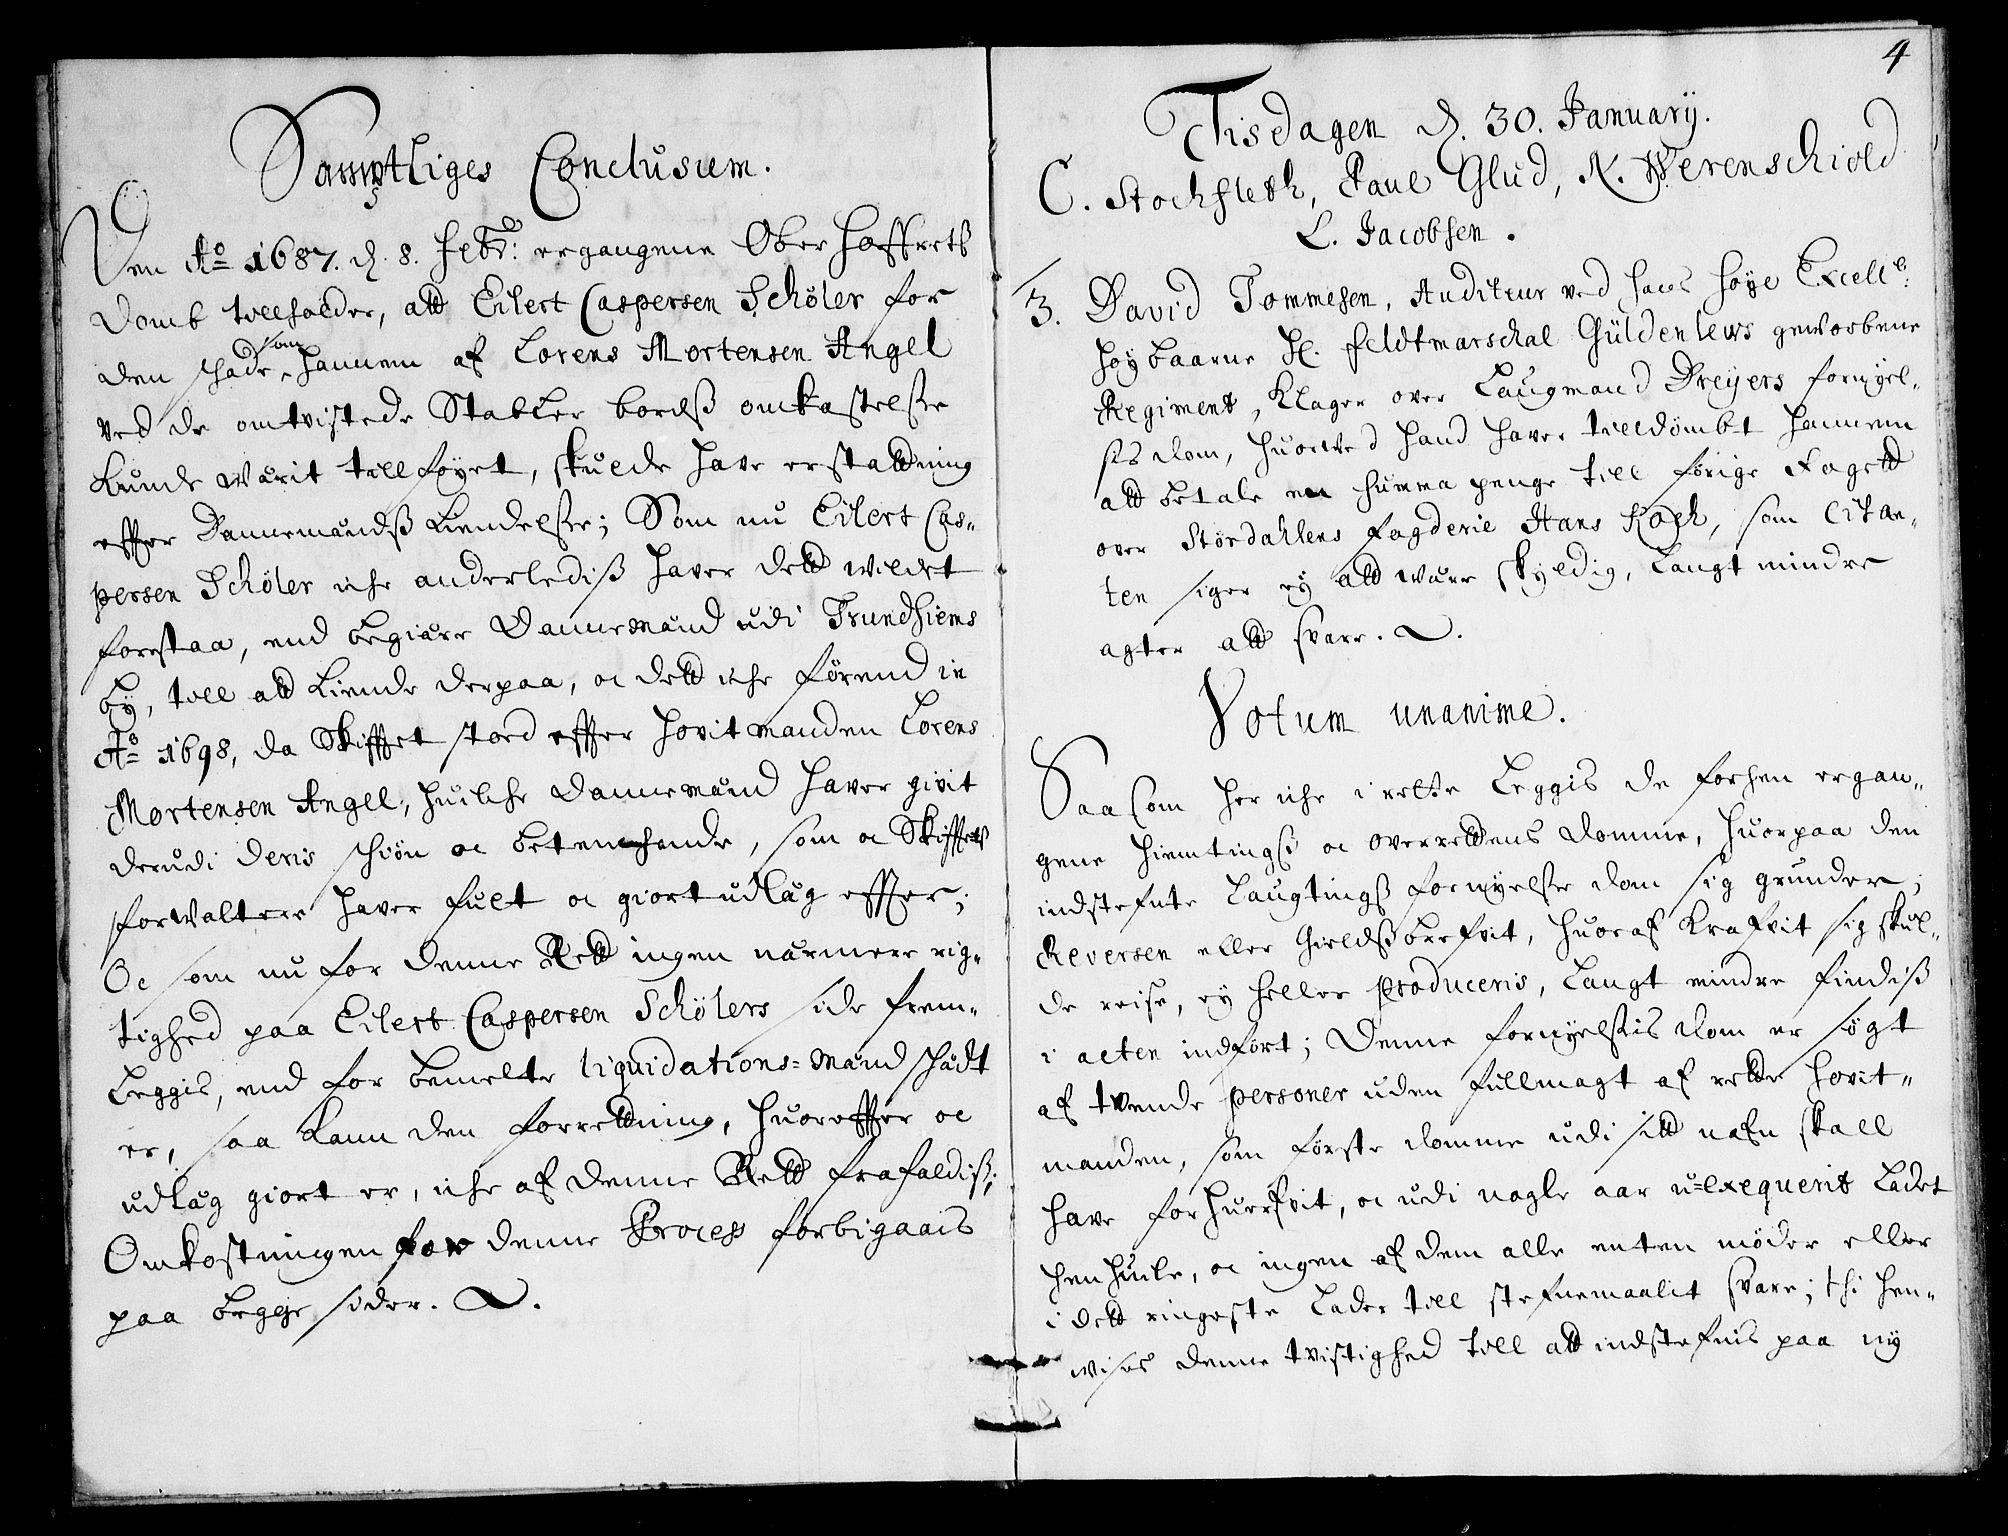 Samptliges Conclusum.
Den Ao 1687. d. 8. Febr: ergangene Ober Hoffrets
Domb tillholder, att Eilert Caspersen Schöler for
den schade, som hannem af Lorens Mortensen Angel
ved de omtvistede Stabler bordß omkastelße
kunde wærit tillföyet, skulde have erstattning
effter Dannemændß kiendelße; Som nu Eilert Cas-
persen Schöler iche anderlediß haver dett wildet
forstaa, end begiære Dannemænd udi Trundhiems
by, till att kiende derpaa, oc dett iche förend in
Ao 1698, da Skifftet stoed effter hovitmanden Lorens
Mortensen Angel, huilche Dannemænd haver givit
derudi deris schiön oc betenchende, som oc Skiffets
forwaltere haver fult oc giort udlæg effter;
Oc som nu for denne Rett ingen nærmere rig-
tighed paa Eilert Caspersen Schölers side frem-
leggis, end for bemelte liquidations-mænd schædt
er, saa kann den forrettning, huoreffter oc
udlæg giort er, iche af denne Rett frafaldiß;
Omkostningen for denne Process forbigaais
paa begge sider.
4
Tisdagen d. 30. January.
C. Stochfleth, Paul Glud, N. Werenschiold
L. Jacobsen.
3. David Tommesen, Auditeur ved hans höye Excelle:
höybaarne H. feldtmarschal Güldenlews geworbene
Regiment, klager over Laugmand Dreyers fornyel-
sis dom, huorved hand haver tilldömbt hannem
att betale en summa penge till forige Fogett
over Stördahlens fogderie Hans Koch, som Citan-
ten siger ey att være skyldig, langt mindre
agter att svare.
Votum unanime.
Saasom her iche i rette leggis de forhen ergan-
gene hiemtingß oc overrettens domme, huorpaa den
indstefnte Laugtingß fornyelße dom sig grunder;
Reversen eller Gieldßbrefvit, huoraf krafvit sig skul-
de reise, ey heller produceris, langt mindre findiß
i acten indfört; Denne fornyelßis dom er sögt
af tvende personer uden fullmagt af rette hovit-
manden, som förste domme udi sitt nafn skall
have forhuerfvit, oc udi nogle aar u-exequerit ladet
henhuile, oc ingen af dem alle enten möder eller
i dett ringeste lader till stefnemaalit svare; thi hen-
wises denne tvistighed till att indstefnis paa ny